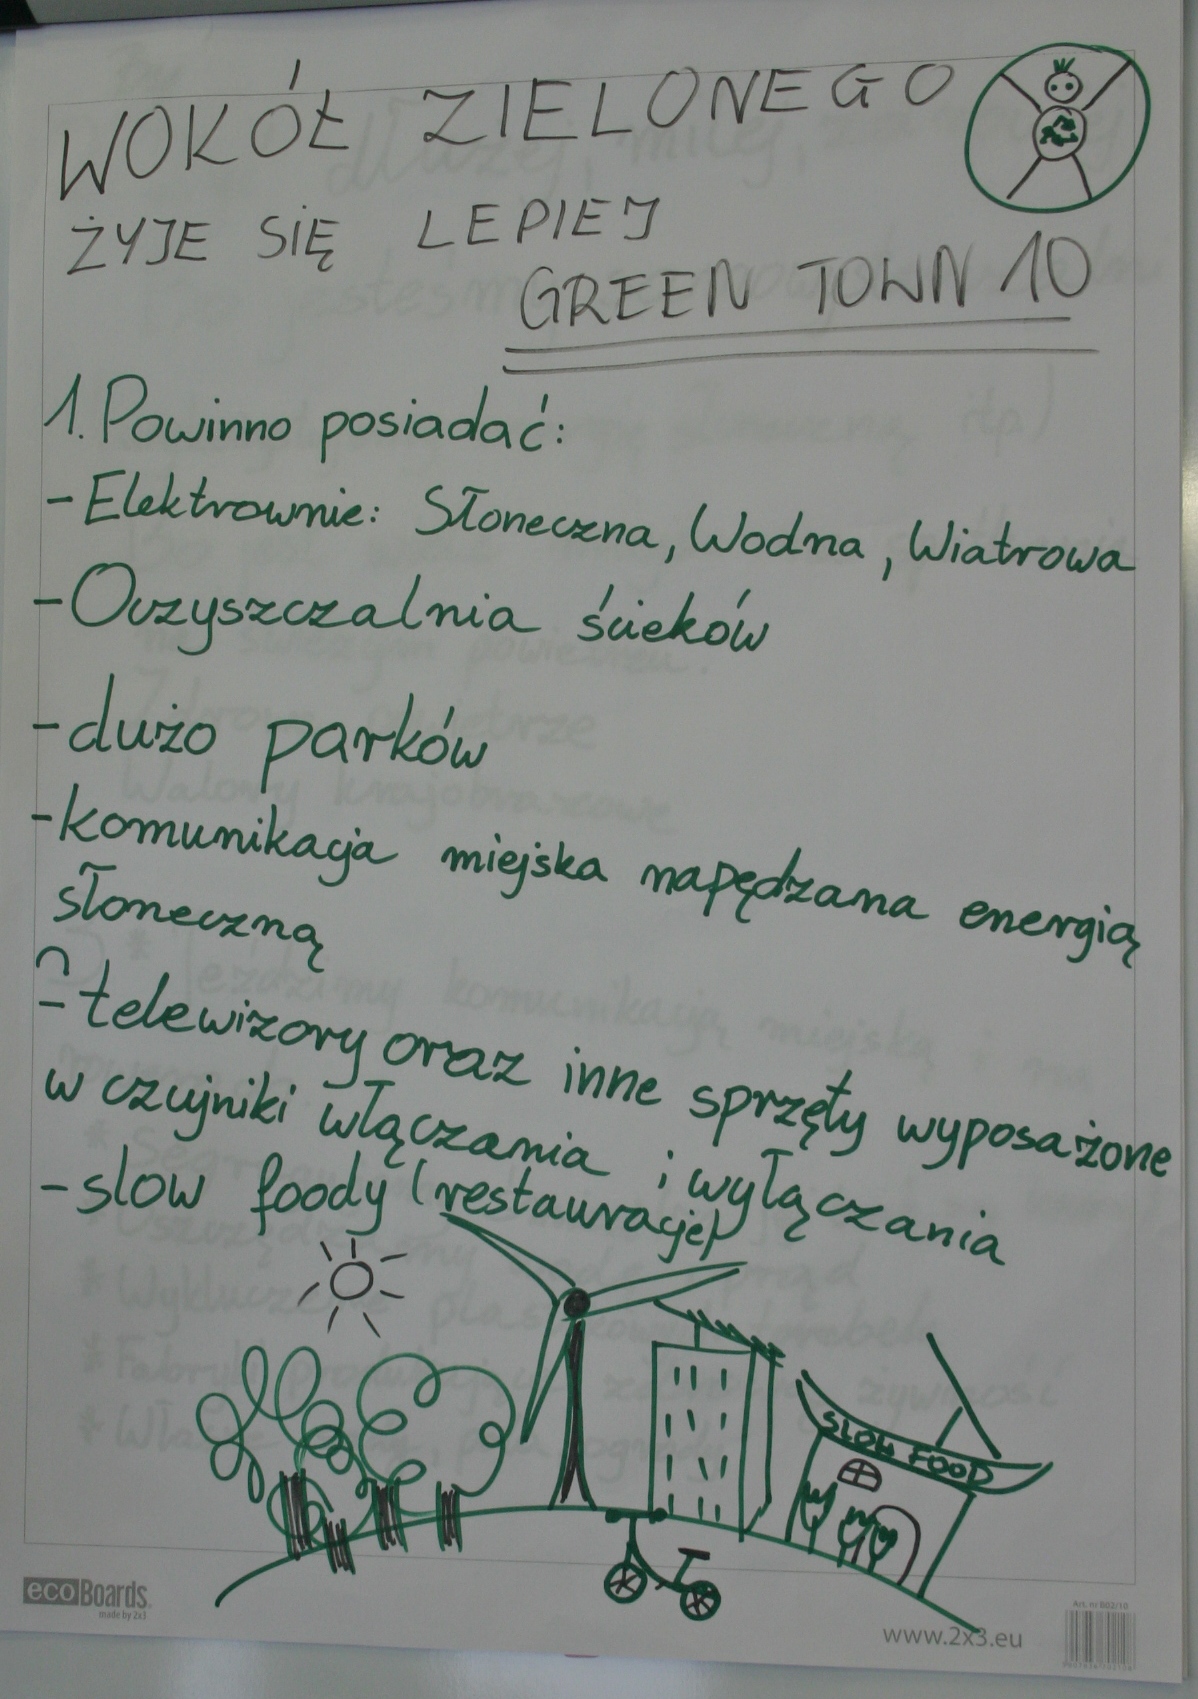 WOKÓŁ ZIELONEGO
ŻYJE SIĘ LEPIEJ
GREEN TOWN 10
1. Powinno posiadać:
- Elektrownie: Słoneczna, Wodna, Wiatrowa
- Oczyszczalnia ścieków
- dużo parków
- komunikacja miejska napędzana energią
słoneczną
- telewizory oraz inne sprzęty wyposażone
w czujniki włączania i wyłączania
- slow foody (restauracje)
SLOW FOOD
eco Boards
made by 2x3
Art. nr B02/10
www.2x3.eu